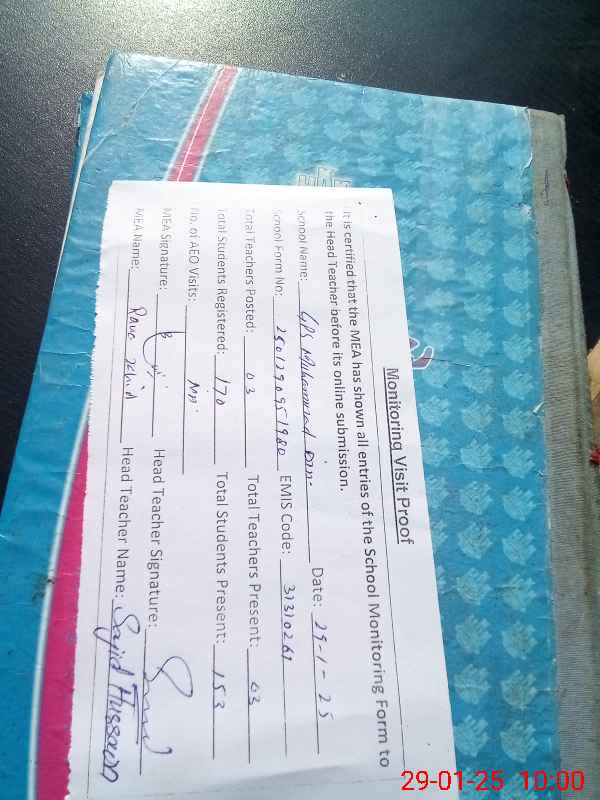 Monitoring Visit Proof
It is certified that the MEA has shown all entries of the School Monitoring Form to
the Head Teacher before its online submission.
School Name: GPS Muhammad Date: 29-1-25
School Form No: EMIS Code: 31310261
Total Teachers Posted: 03 Total Teachers Present: 03
Total Students Registered: 170 Total Students Present: 153
No. of AEO Visits: Nil
MEA Signature: Head Teacher Signature:
MEA Name: Head Teacher Name: Sajid Hussain
29-01-25 10:00